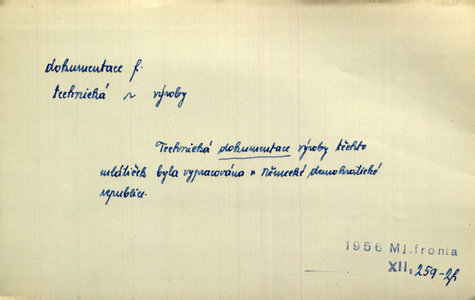 dokumentace f.
technická ~ výroby
Technická dokumentace výroby těchto
mlátiček byla vypracována v Německé demokratické
republice.
1956 Ml.fronta
XII, 259-2f